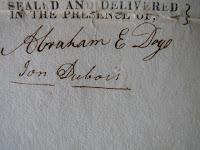 SEALED AND DELIVERED
IN THE PRESENCE OF,
Abraham E Doyo
Jon Dubois